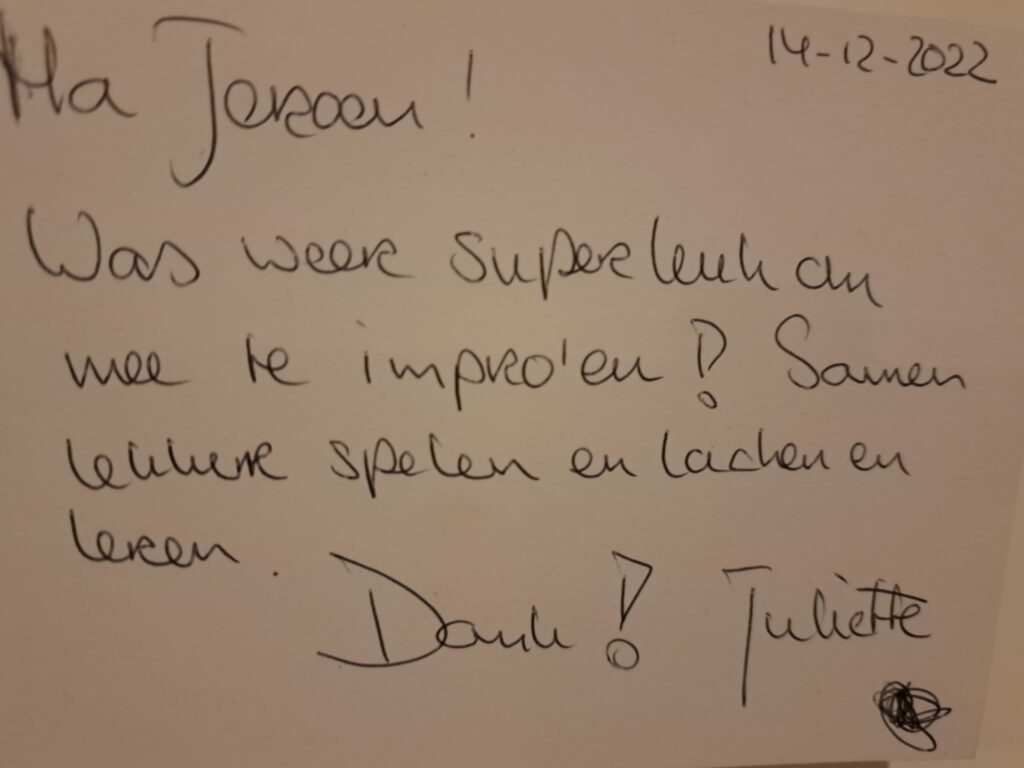 Ha Jeroen! 14-12-2022
Was weer superleuk om
mee te impro'en! Samen
lekker spelen en lachen en
leren.
Dank! Juliette